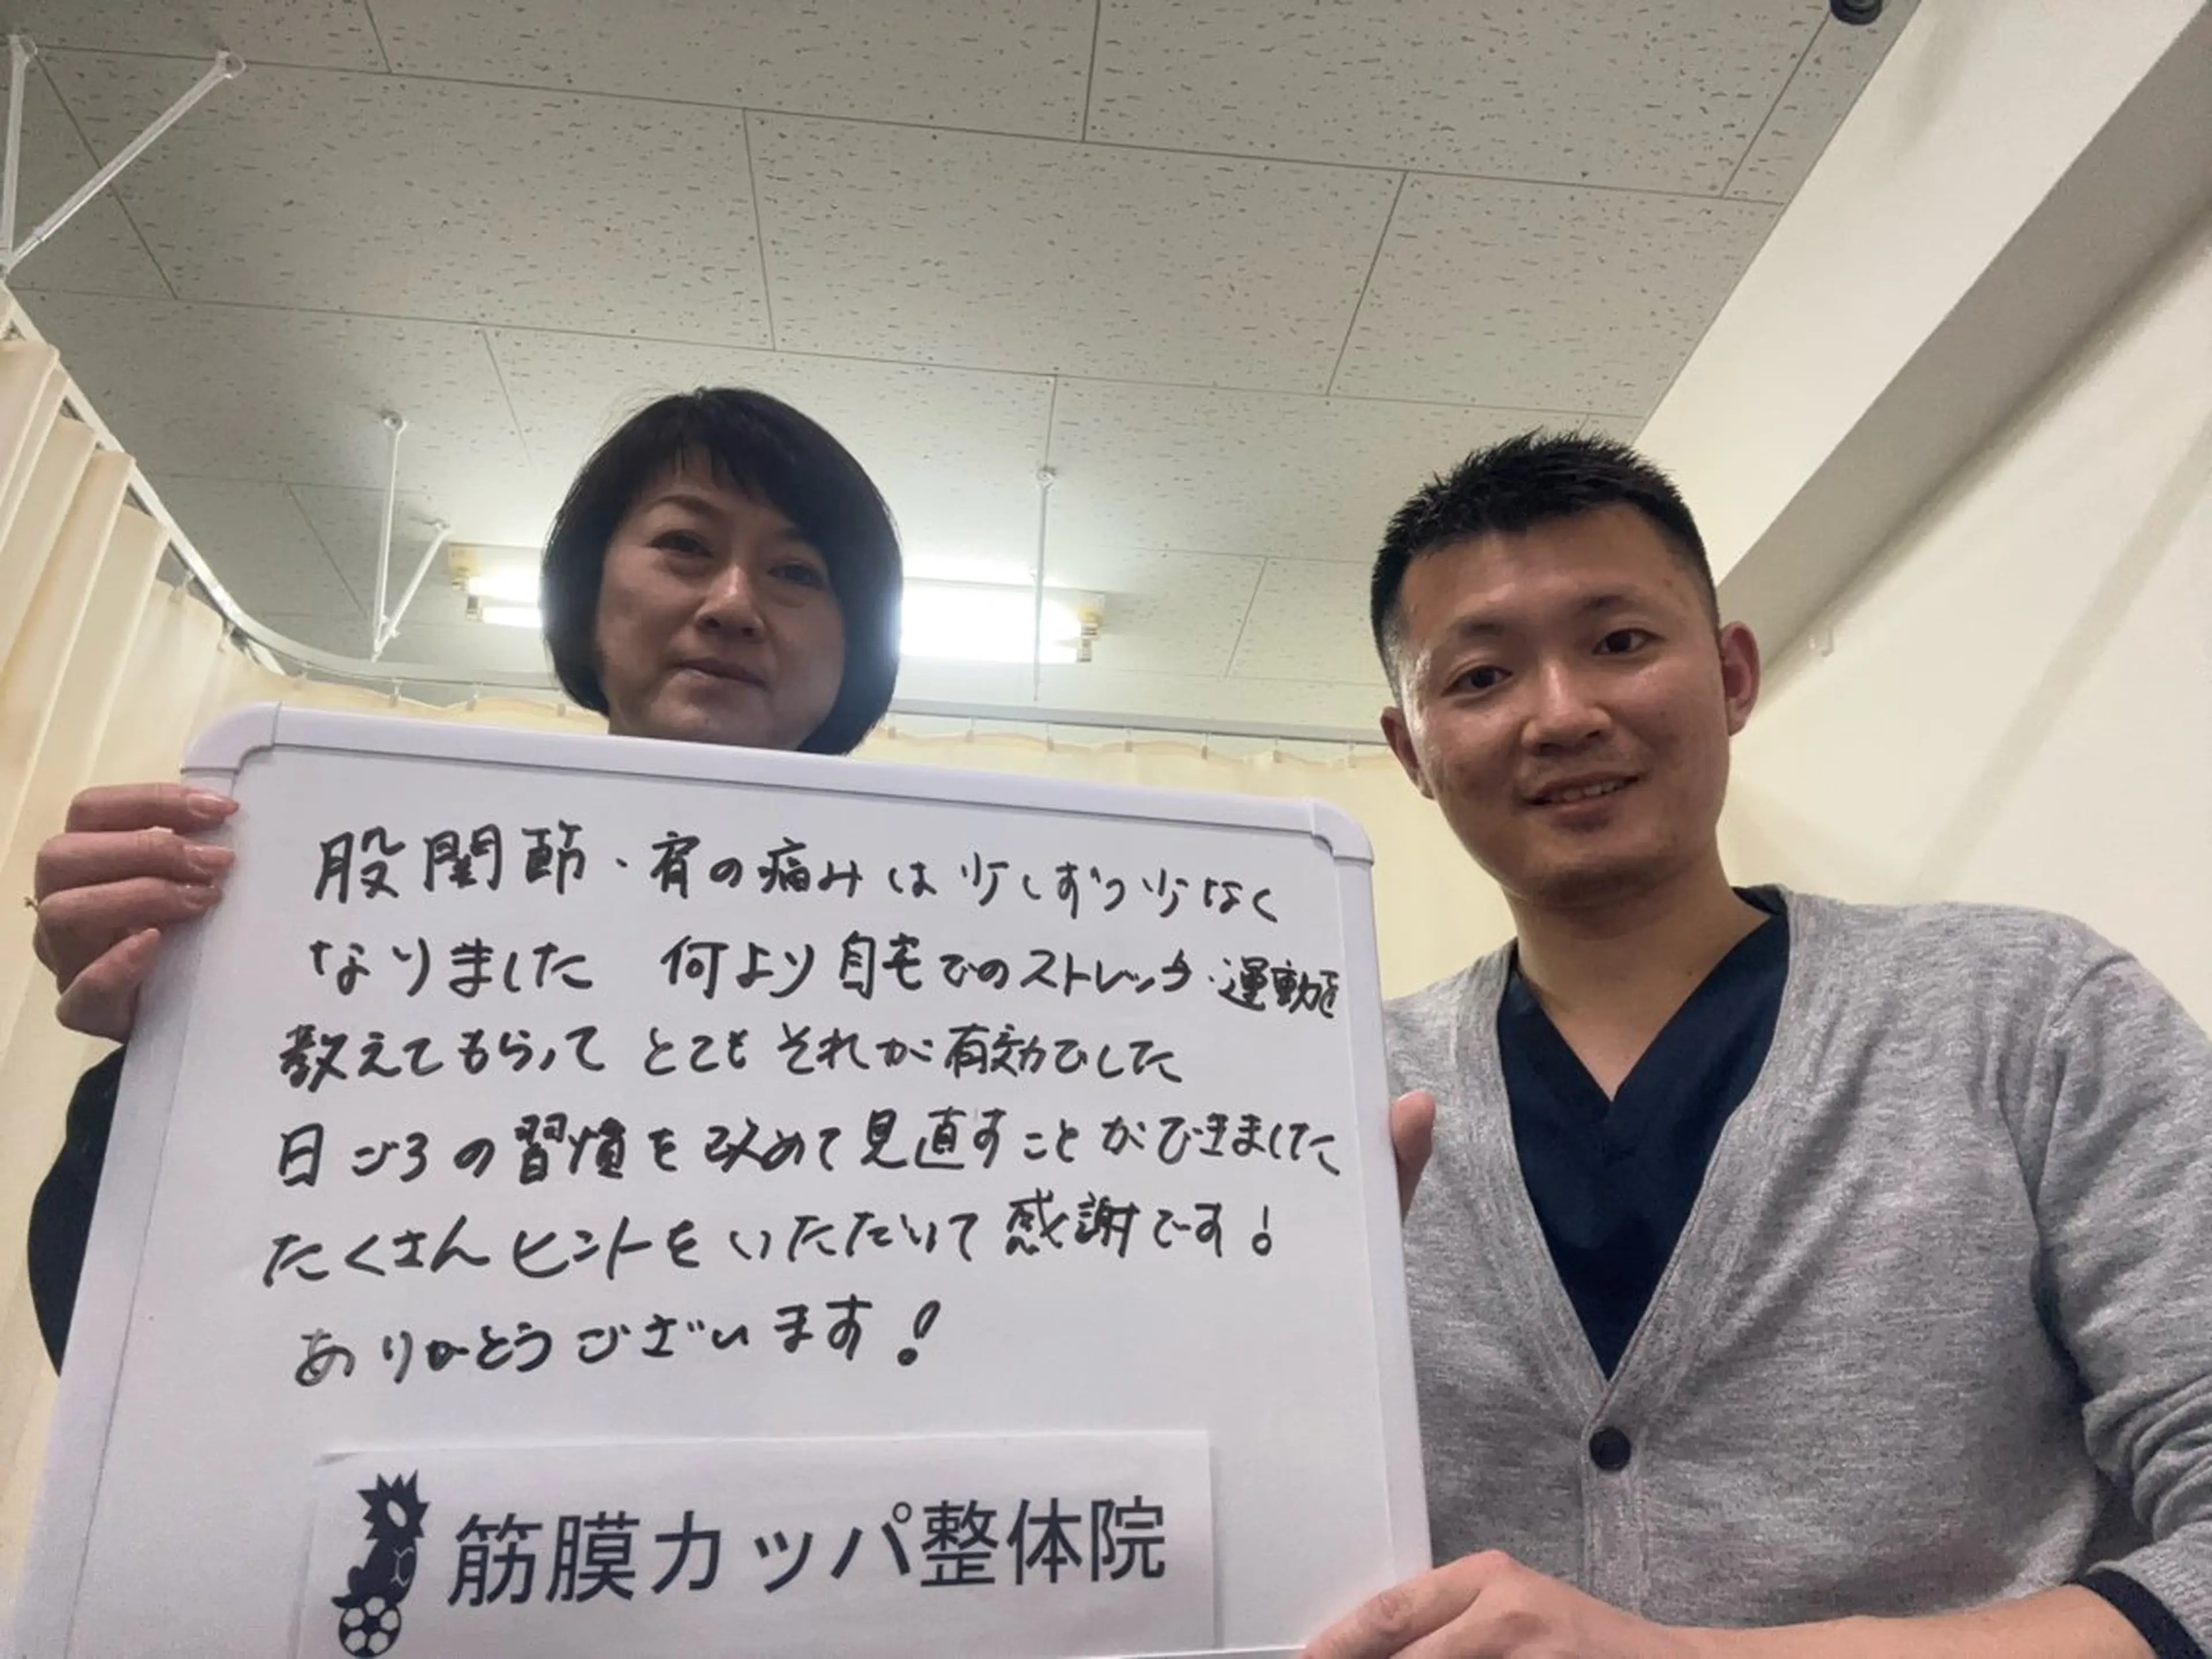 股関節・肩の痛みは少しずつ少なく
なりました 何より自宅でのストレッチ・運動を
教えてもらって とてもそれが有効でした
日ごろの習慣を改めて見直すことができました
たくさんヒントをいただいて感謝です!
ありがとうございます!
筋膜カッパ整体院